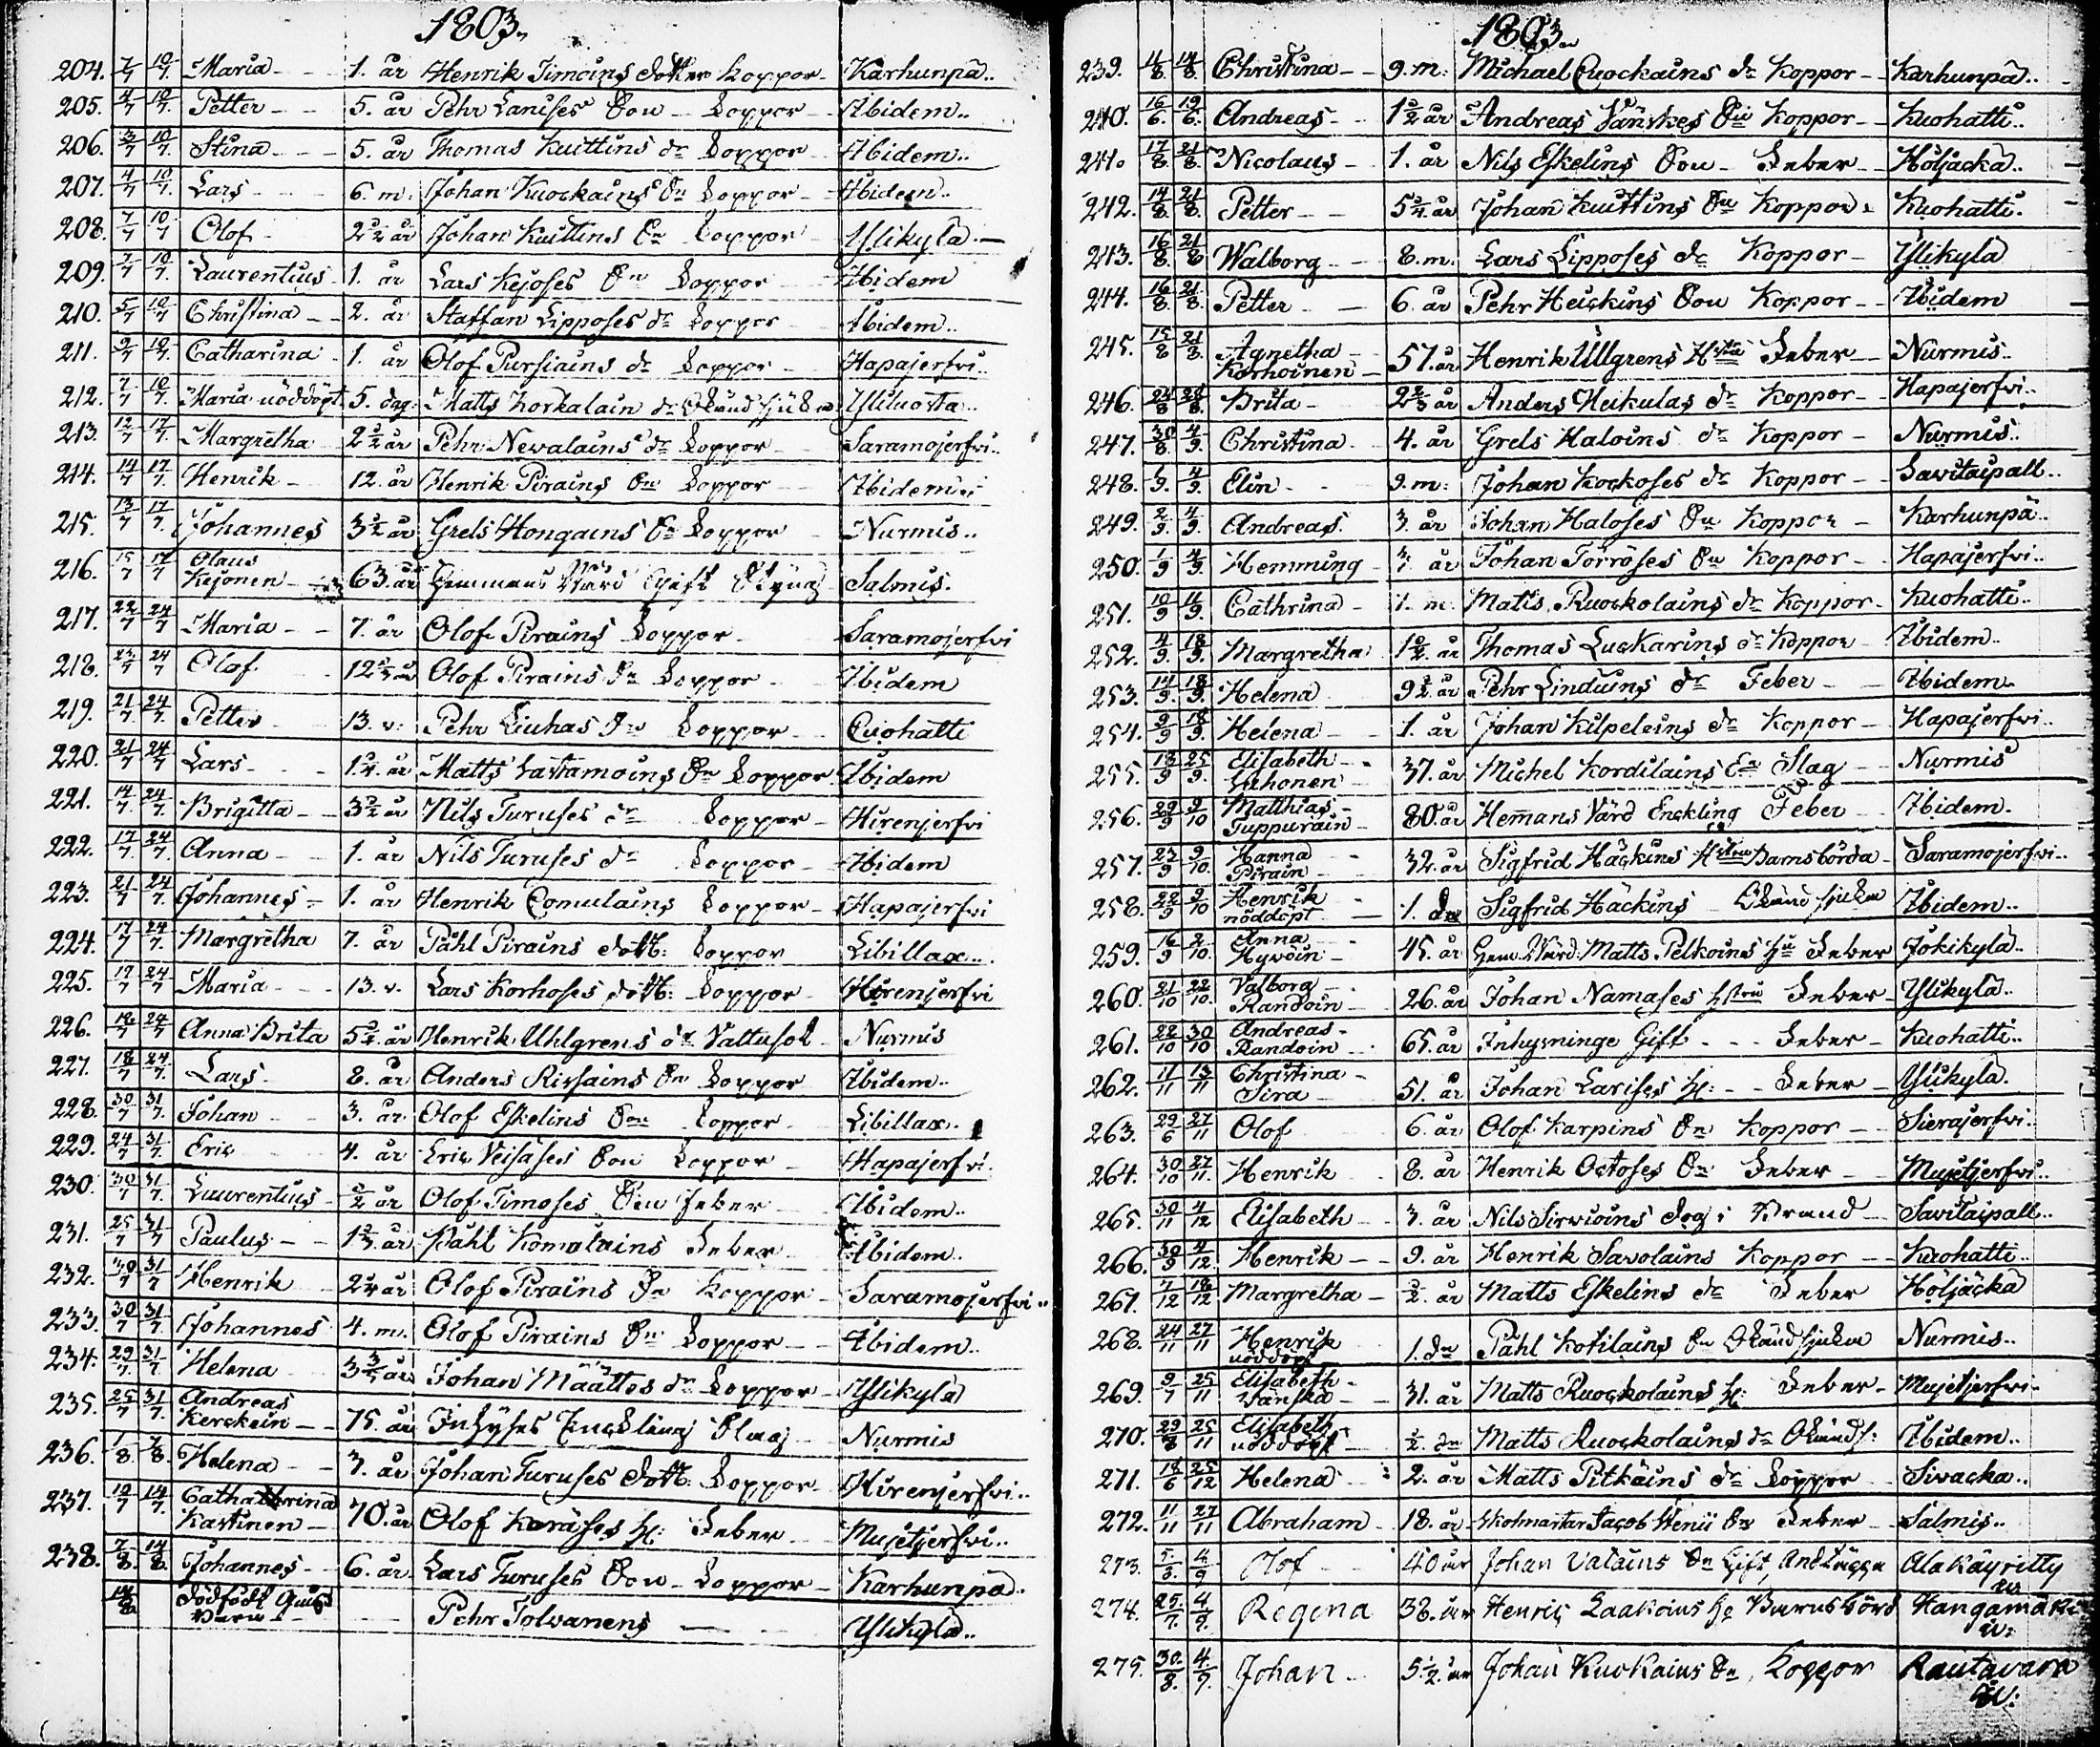 1803.
204. 7/7 10/7. Maria 1. år Henrik Timoins dotter koppor Karhunpä..
205. 4/7 10/7. Petter 5. år Pehr Lanises Son koppor Ibidem..
206. 3/7 10/7. Stina 5. år Thomas Kuittins dr koppor Ibidem..
207. 4/7 10/7. Lars 6. m. Johan Kuockains Sn koppor Ibidem..
208. 7/7 10/7 Olof 2 1/2 år Johan Kuittins Sn koppor Ylikylä.
209. 7/7 10/7. Laurentius 1. år Lars Kejoses Sn koppor Ibidem
210. 5/7 10/7 Christina 2. år Staffan Lipposes dr koppor Ibidem..
211. 9/7 10/7. Catharina 1. år Olof Pursiains dr koppor Hapajerfvi..
212. 7/7 10/7. Maria nöddöpt 5. dag. Matts Korkalain dr Okänd sjukd Yliluosta..
213. 12/7 17/7. Margretha 2 1/2 år Pehr Nevalains dr koppor Saramojerfvi..
214. 14/7 17/7. Henrik 12. år Henrik Pirains Sn koppor Ibidem..
215. 13/7 17/7. Johannes 3 1/2 år Grels Hongains Sn koppor Nurmis..
216. 15/7 17/7 Olaus Kejonen 63. år Hemmans Värd Gift Salmis.
217. 22/7 24/7 Maria 7. år Olof Pirains koppor Saramojerfvi
218. 22/7 24/7 Olof 12 år Olof Pirains Sn koppor Ibidem
219. 21/7 24/7. Petter 13. v. Pehr Liuhas Sn koppor Cuohatti
220. 21/7 24/7 Lars 1 1/4 år Matts Sartamoins Sn koppor Ibidem
221. 14/7. 24/7. Brigitta 3 1/2 år Nils Turuses dr koppor Hirenjerfvi
222. 17/7. 24/7. Anna 1. år Nils Turuses dr koppor Ibidem
223. 21/7 24/7. Johannes 1. år Henrik Comulains koppor Hapajerfvi
224. 17/7 24/7. Margretha 7. år Påhl Pirains dott: koppor Libillax..
225. 17/7 24/7 Maria 13. v. Lars Korhoses dott: koppor Hirenjerfvi
226. 18/7 24/7 Anna Brita 5 1/2 år Henrik Uhlgrens dr Vattusot Nurmis
227. 18/7 24/7. Lars 8. år Anders Rissains Sn koppor Ibidem..
228. 30/7 31/7. Johan 3. år Olof Eskelins Son koppor Libillax..
229. 24/7 31/7. Eric 4. år Eric Veisäses Son koppor Hapajerfvi.
230. 30/7 31/7. Laurentius 1/2 år Olof Timoses Son Feber Ibidem..
231. 25/7 31/7 Paulus 1 år Påhl Komulains Feber Ibidem.
232. 30/7 31/7 Henrik 2 1/4 år Olof Pirains Sn koppor Saramojerfvi..
233. 30/7 31/7 Johannes 4. m. Olof Pirains Sn koppor Ibidem..
234. 29/7. 31/7. Helena 3 3/4 år Johan Määttes dr koppor Ylikylä
235. 25/7 31/7. Andreas Kerckein 75. år Inhyses Enckling Slag Nurmis
236. 1/8. 7/8. Helena 3. år Johan Turuses dott: koppor Hirenjerfvi..
237. 10/7 14/7. Catharina Kastinen 70. år Olof Keräses H: Feber Mujetjerfvi..
238. 7/8. 14/8. Johannes 6. år Lars Turuses Son koppor Karhunpä..
14/8. dödfödt Barn Pehr Tolvanens Ylikylä..
1803.
239. 11/8. 14/8. Christina 9. m: Michael Cuockains dr koppor Karhunpä..
240. 16/6. 19/6. Andreas 1 1/2 år Andreas Vänskes Sn koppor Kuohatti..
241. 17/8. 21/8. Nicolaus 1. år Nils Eskelins Son Feber Höljäckä..
242. 14/8. 21/8. Petter 5 1/4 år Johan Kuittins Sn koppor Kuohatti.
243. 16/8. 21/8 Walborg 8. m. Lars Lipposes dr koppor Ylikylä
244. 16/8. 21/8. Petter 6. år Pehr Heickins Son koppor Ibidem
245. 15/8 21/8. Agnetha Korhoinen 57. år Henrik Ullgrens Hstru Feber Nurmis..
246. 24/8 28/8. Brita 2 2/3 år Anders Heikulas dr koppor Hapajerfvi..
247. 30/8. 4/9. Christina 4. år Grels Haloins dr koppor Nurmis..
248. 1/9. 4/9. Elin 9. m: Johan Kockoses dr koppor Savitaipall..
249. 2/9. 4/9. Andreas 3. år Johan Haloses Sn koppor Karhunpä..
250. 1/9 4/9. Hemming 3. år Johan Törröses Sn koppor Hapajerfvi..
251. 10/9 11/9. Cathrina 1. m. Matts Ruockolains dr koppor Kuohatti..
252. 4/9. 18/9. Margretha 1 1/2. år Thomas Luckarins dr koppor Ibidem..
253. 14/9. 18/9. Helena 9 1/2. år Pehr Linduins dr Feber Ibidem.
254. 9/9 18/9. Helena 1. år Johan Kilpeleins dr koppor Hapajerfvi..
255. 13/9 25/9. Elisabeth 37. år Michel Kordilains En Slag Nurmis
256. 29/9 9/10 Matthias Tuppurain 80. år Hemans Värd Enckling Feber Ibidem.
257. 23/9 9/10. Hanna Pirain 32. år Sigfrid Häckins Hstru Barnsbörda Saramojerfvi..
258. 22/9 9/10 Henrik nöddöpt 1. dn Sigfrid Häckins Okänd sjukd Ibidem..
259. 16/9 2/10. Anna Hyvöin 45. år Hem. Värd Matts Pelkoins Hu Feber Jokikylä..
260. 21/10 22/10. Valborg Randoin 26. år Johan Namases hstru Feber Ylikylä..
261. 22/10 30/10 Andreas Randoin 65. år Inhysninge Gift Feber Kuohatti..
262. 11/11 13/11 Christina Sira 51. år Johan Larises H: Feber Ylikylä.
263. 29/6 27/11 Olof 6. år Olof Karpins Sn koppor Sierajerfvi..
264. 30/10 27/11. Henrik 8. år Henrik Octoses Sn Feber Mujetjerfvi..
265. 30/11 4/12 Elisabeth 3. år Nils Sirvioins dog i Brand Savitaipall..
266. 30/9 4/12 Henrik 9. år Henrik Savolains koppor Kuohatti..
267. 7/12 18/12 Margretha 1/2. år Matts Eskelins dr Feber Höljäckä
268. 24/11 27/11 Henrik nöddöpt 1. dn Påhl Kotilains Sn Okänd sjukd Nurmis..
269. 9/7 25/11 Elisabeth Vänskä 31. år Matts Ruockolains H: Feber Mujetjerfvi.
270. 29/8 25/11 Elisabeth nöddöpt 1/2. dn Matts Ruockolains dr Okänd s: Ibidem..
271. 18/6 25/12 Helena 2. år Matts Pitkäins dr koppor Sivacka..
272. 11/11 27/11 Abraham 18. år Skolmästar Jacob Wenii Sn Feber Salmis..
273. 5/8. 4/9 Olof 40 år Johan Valains Sn Gift, Andtäppa Ala Käyritty
274. 25/7. 4/9. Regina 38. år Henric Laakoins H: Barnsbörd Hangamäki
275. 30/8. 4/9. Johan 5 1/2. år Johan Kuokains Sn Koppor Rautavara